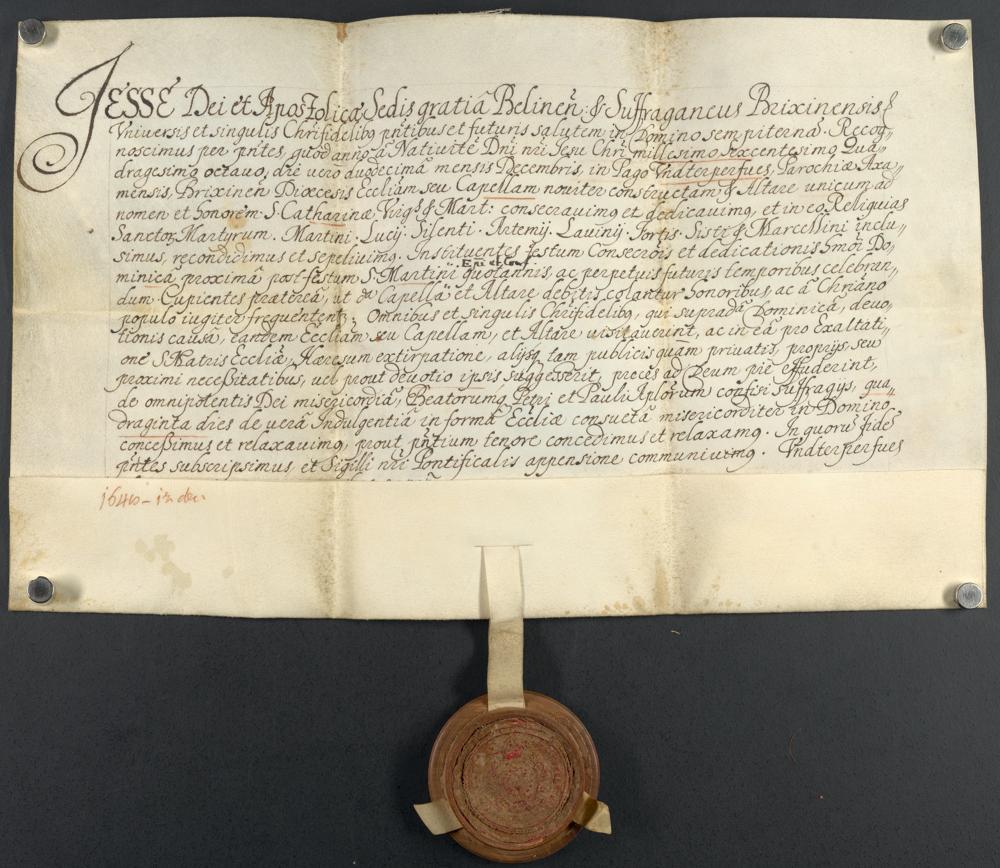 JESSE Dei et Apostolicæ Sedis gratiâ Belinen̄: & Suffraganeus Brixinensis
Vniuersis et singulis Chr̄ifidelibꝫ pn̄tibus et futuris salutem in Domino sempiternā. Recog„
noscimus per pn̄tes, quòd anno â Natiuitē Dn̄i nr̄i Jesu Chrī millesimo sexcentesimo qua„
dragesimo octauo, die vero duodecimâ mensis Decembris, in Pago Vndterperfues, Parochiæ Axa„
mensis, Brixinen̄ Diœcesis Eccl̄iam seu Capellam nouiter constructam & Altare vnicum ad
nomen et honorem S. Catharinæ Virg: & Mart: consecrauimꝫ et dedicauimꝫ, et in eo Reliquias
Sanctor Martyrum. Martini. Lucij. Silenti. Artemij. Lauinij. Fortis. Sisti & Marcellini inclu„
simus, recondidimus et sepeliuimꝫ. Instituentes festum Consecrōis et dedicationis hmōi Do„
minicâ proximâ post festum S. Martini Epi et Conf. quotannis, ac perpetuis futuris temporibus celebran„
dum Cupientes prætereà, ut dā Capella et Altare debitis colantur honoribus, ac â Chr̄iano
populo iugiter frequententr; Omnibus et singulis Chr̄ifidelibꝫ, qui supradâ Dominicâ, deuo„
tionis causa, eandem Eccliam seu Capellam, et Altare visitauerint, ac in eâ pro exaltati„
onē S. Matris Eccliæ, Hæresum extirpatione, alijsqꝫ tam publicis quàm priuatis, proprijs seu
proximi necessitatibus, uel prout deuotio ipsis suggesserit, preces ad Deum piè effuderint,
de omnipotentis Dei misericordiâ, Beatorumqꝫ Petri et Pauli Aplōrum confisi suffragijs, qua„
draginta dies de verâ Indulgentiâ in formâ Eccliæ consuetâ misericorditer in Domino
concessimus et relaxauimꝫ, prout pn̄tium tenore concedimus et relaxamꝫ. In quorū fidē
pn̄tes subscripsimus et Sigilli nr̄i Pontificalis appensione communiuimꝫ. Vndterperfues